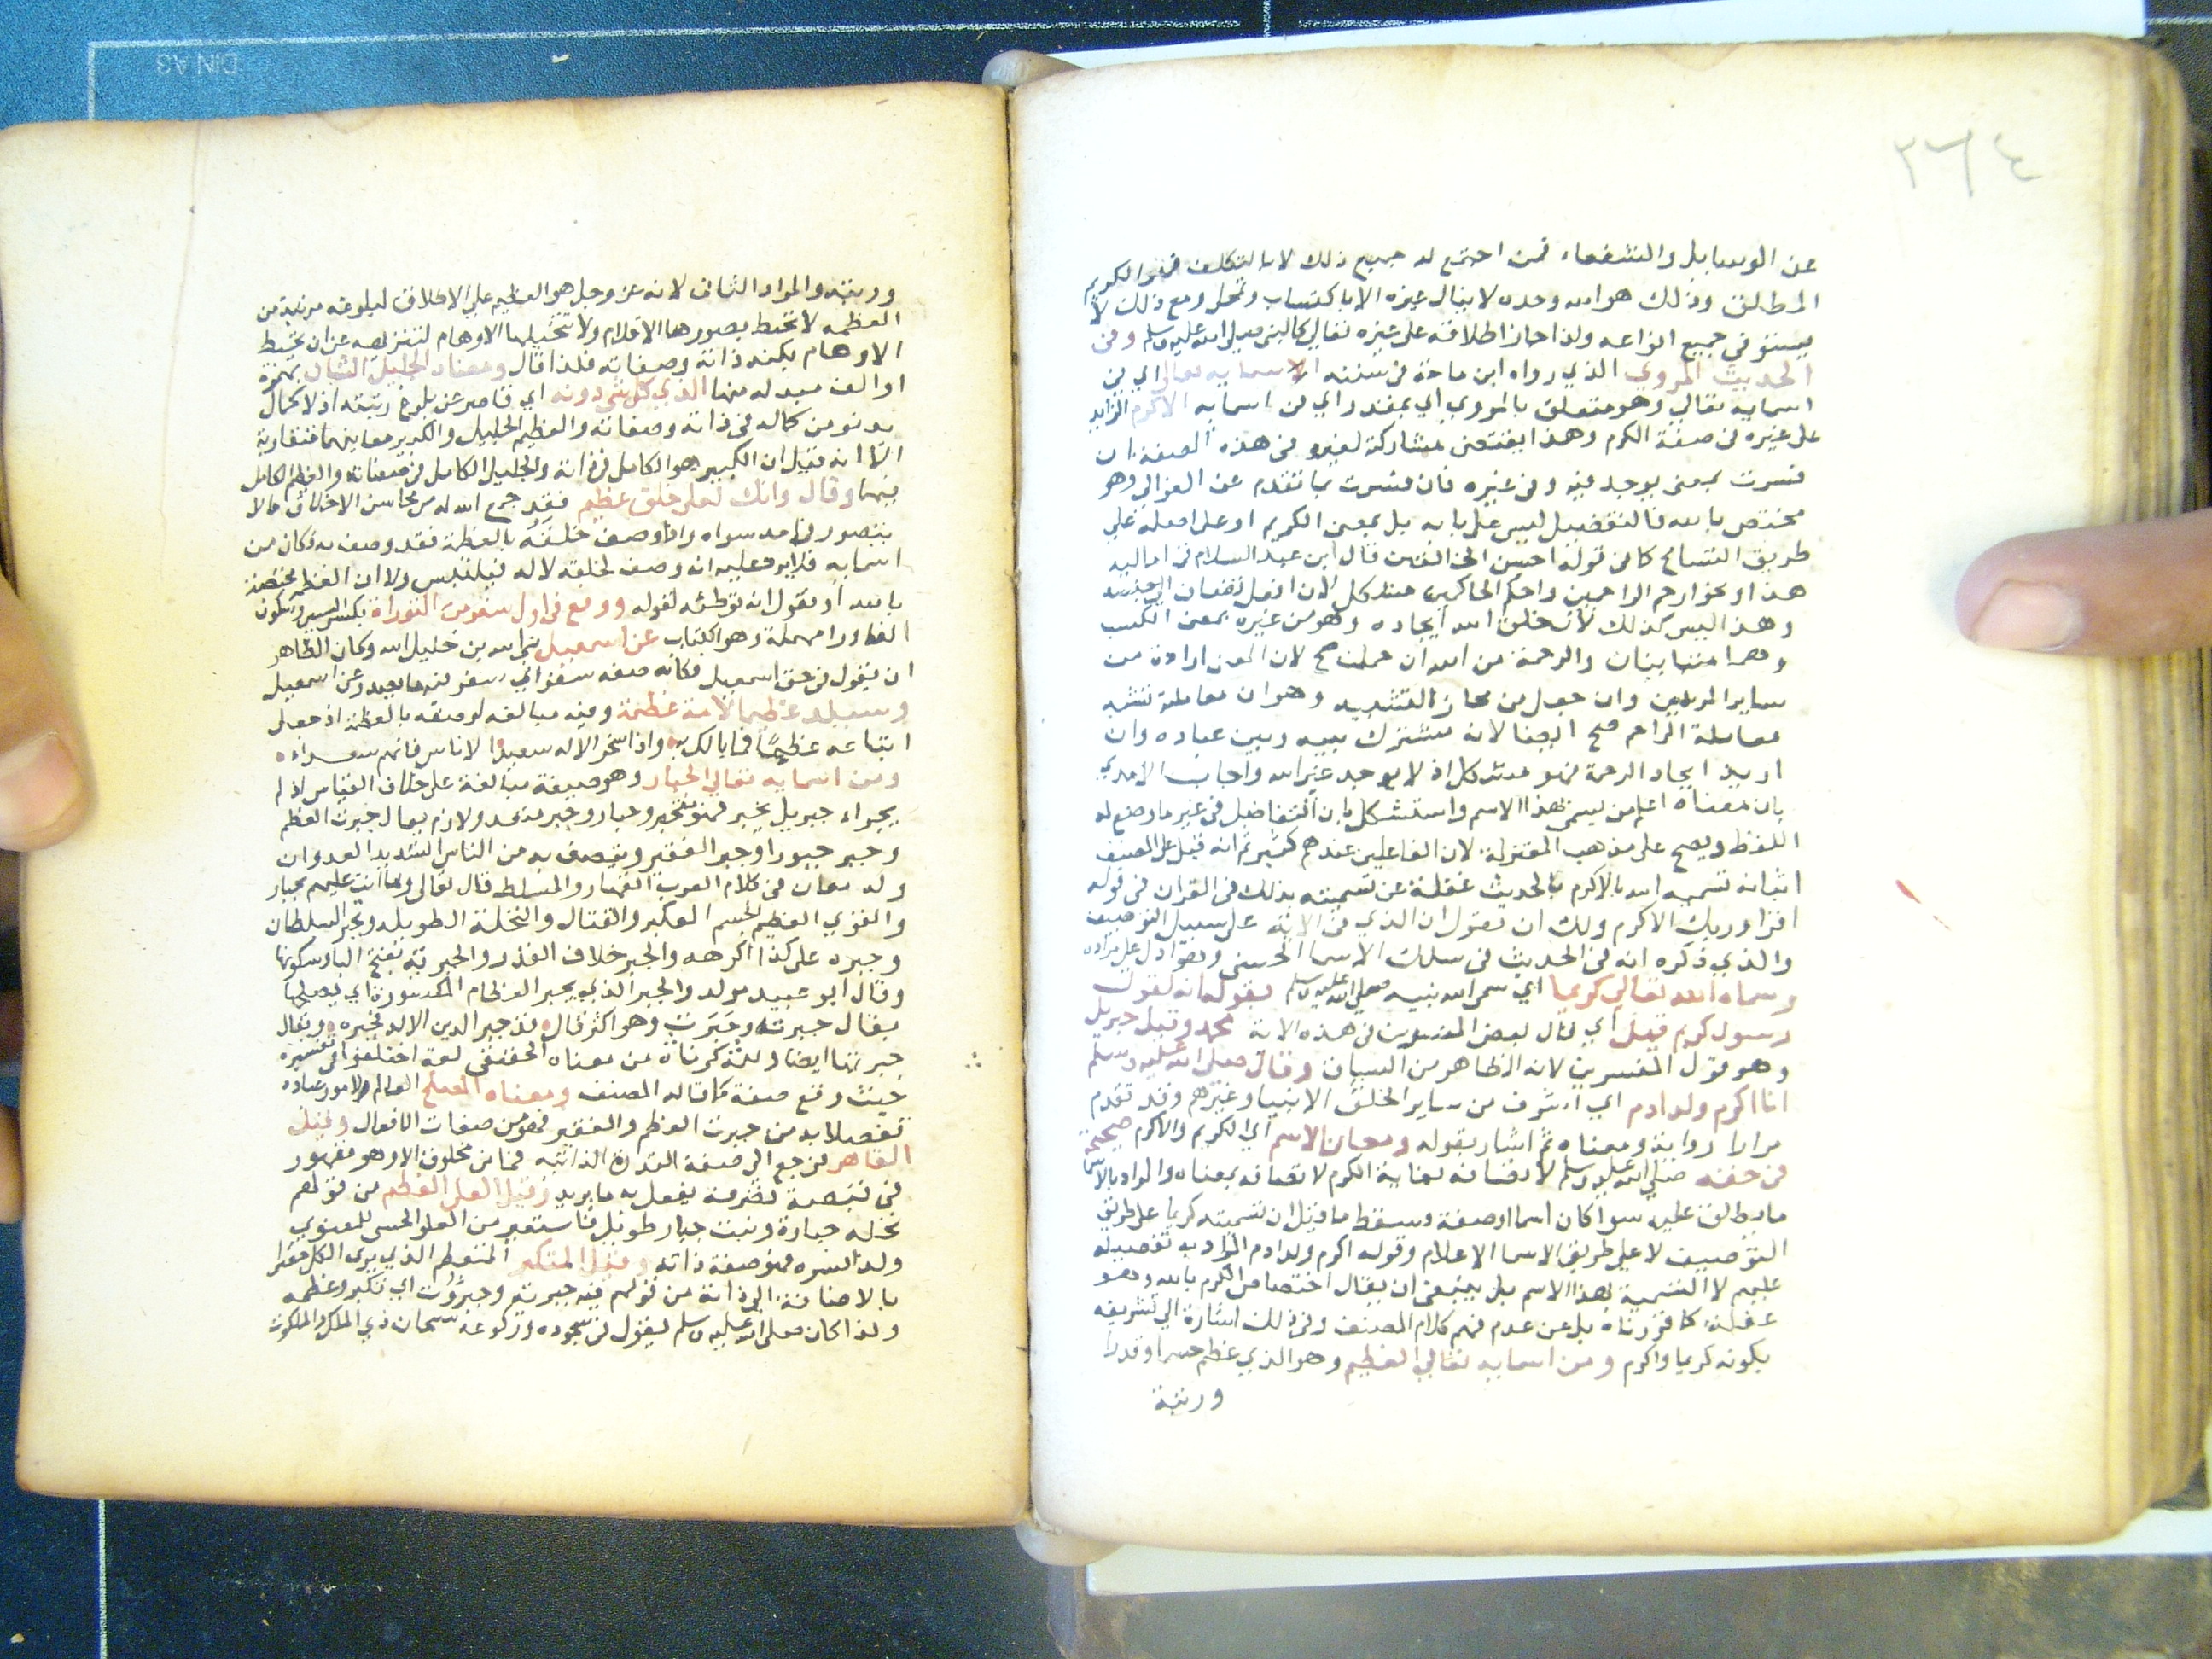 ٣٦٤
عن الوسايل والشفعاء فمن اجتمع له جميع ذلك لا بالتكلف فهو الكريم
المطلق وذلك هو الله وحده لا ينال غيره الا باكتساب وتمحل ومع ذلك لا
يستوفي جميع انواعه ولذا جاز اطلاقه على غيره تعالى كالنبي صلى الله عليه وسلم وفي
الحديث المروي الذي رواه ابن ماجة في سننه الاسمايه تعالى اي في
اسمايه تعالى وهو متعلق بالمروي اي بمقدر اي من اسمايه الاكرم الزايد
على غيره في صفة الكرم وهذا يقتضي مشاركة لغيره في هذه الصفة ان
فسرت بمعنى يوجد فيه وفي غيره فان فسرت بما تقدم عن الغزالي وهو
مختص بالله فالتفضيل ليس على بابه بل بمعنى الكريم او على اصله على
طريق التسامح كما في قوله احسن الخالقين قال ابن عبد السلام في اماليه
هذا ونحو ارحم الراحمين واحكم الحاكمين مشكل لان افعل تضاف الى جنسه
وهذا ليس كذلك لان خلق الله ايجاده وهو من غيره بمعنى الكسب
وهما متباينان والرحمة من الله ان حملت صح لان المعنى ارادة من
ساير المريدين وان جعل من مجاز التشبيه وهو ان معاملته تشبه
معاملة الراحم صح ايضا لانه مشترك بينه وبين عباده وان
اريد ايجاد الرحمة فهو مشكل اذ لا يوجد غير الله واجاب الامدي
بان معناه اعظم من يسمى بهذا الاسم واستشكل بان التفاضل في غير ما وضع له
اللفظ ويصح على مذهب المعتزلة لان الفاعلين عندهم كثير ثم انه قيل على المصنف
اثباته تسميه الله بالاكرم بالحديث غفلة عن تسميته بذلك في القران في قوله
اقرا وربك الاكرم ولك ان تقول ان الذي في الاية على سبيل التوصيف
والذي ذكره انه في الحديث في سلك الاسما الحسنى وهو ادل على مراده
وسماه الله تعالى كريما اي سمى الله نبيه صلى الله عليه وسلم بقوله انه لقول
رسول كريم قيل اي قال بعض المفسرين في هذه الاية محمد وقيل جبريل
وهو قول المفسرين لانه الظاهر من السياق وقال صلى الله عليه وسلم
انا اكرم ولد ادم اي اشرف من ساير الخلق الانبيا وغيرهم وقد تقدم
مرارا رواية ومعناه ثم اشار بقوله ومعاني الاسم اي الكريم والاكرم صحيحة
في حقه صلى الله عليه وسلم لاتصافه بغاية الكرم لا تصافه بمعناه والمراد بالاسما
ما يطلق عليه سوا كان اسما او صفة وسقط ما قيل ان تسميته كريما على طريق
التوصيف لا على طريق الاسما الاعلام وقوله اكرم ولد ادم المراد به تفضيله
عليهم لا التسمية بهذا الاسم بل ينبغي ان يقال اختصاص الاكرم بالله وهو
غفلة كما قررناه بل عن عدم فهم كلام المصنف وفي ذلك اشارة الى تشريفه
بكونه كريما واكرم ومن اسمايه تعالى العظيم وهو الذي عظم جسما وقدرا
ورتبة
ورتبة والمراد الثاني لانه عز وجل هو العظيم على الاطلاق لبلوغه مرتبة من
العظمه لا تحيط بصورها الاقلام ولا تتخيلها الاوهام لتنزيهه عن ان تحيط
الاوهام بكنه ذاته وصفاته فلذا قال ومعناه الجليل الشان بهمزة
او الف مبدله منها الذي كل شي دونه اي قاصر عن بلوغ رتبته اذ لا كمال
يدنو من كماله في ذاته وصفاته والعظيم الجليل والكبير معانيها متقاربة
الا انه قيل ان الكبير هو الكامل في ذاته والجليل الكامل في صفاته والعظيم الكامل
فيهما وقال وانك لعلى خلق عظيم فقد جمع الله له من محاسن الاخلاق ما لا
يتصور في احد سواه واذا وصف خلقه بالعظمة فقد وصف به فكان من
اسمايه فلا يرد عليه انه وصف لخلقه لا له فيلتبس ولا ان العظيم مختصة
بالله او نقول انه توطئه لقوله ووقع في اول سفر من التوراة بكسر السين وسكون
الفا ورا مهملة وهو الكتاب عن اسمعيل نبي الله بن خليل الله وكان الظاهر
ان يقول في حق اسمعيل فكانه صفه سفر اي سفر فيه ما يصدر عن اسمعيل
وسيلد عظيما لامة عظيمة وفيه مبالغه لوصفه بالعظمة اذ جعل
اتباعه عظيما فما بالك به واذا سخر الاله سعيدا لاناس فانهم سعداء
ومن اسمايه تعالى الجبار وهو صيغة مبالغة على خلاف القياس اذ لم
يجئ اجبر بل يجبر فهو مجبر وجبار وجبر متعد ولازم يقال جبرت العظم
وجبر جبورا وجبر الفقير ويتصف به من الناس الشديد العدوان
وله معان في كلام العرب القهار والمسلط قال تعالى وما انت عليهم بجبار
والقوي العظيم الجسم المتكبر والقتال والنخلة الطويلة وتجبر السلطان
وجبره على كذا اكرهه والجبر خلاف القدر والجبرية بفتح البا وسكونها
وقال ابو عبيد مولد والجبر الذي يجبر العظام المكسورة اي يصلحها
يقال جبرته وجبرت وهو اكثر قال قد جبر الدين الاله فجبره ويقال
جبرتها ايضا ولما ذكرناه من معناه الحقيقي لغة اختلفوا في تفسيره
حيث وقع صفة كما قاله المصنف ومعناه المصلح العالم لامور عباده
تفضلا به من جبرت العظم والفقير فهو من صفات الافعال وقيل
القاهر فرجع الى صفة القدرة الذاتيه فما من مخلوق الا وهو مقهور
في قبضة تصرفه يفعل به ما يريد وقيل العلي العظيم من قولهم
نخله جبارة ونبت جبار طويل فاستعير من العلو الحسي للمعنوي
ولذا فسره فهو صفة ذاته وقيل المتكبر المتعظم الذي يرى الكل حقيرا
بالاضافة الى ذاته من قولهم فيه جبرية وجبروت اي تكبر وعظمه
ولذا كان صلى الله عليه وسلم يقول في سجوده وركوعه سبحان ذي الملك والملكوت